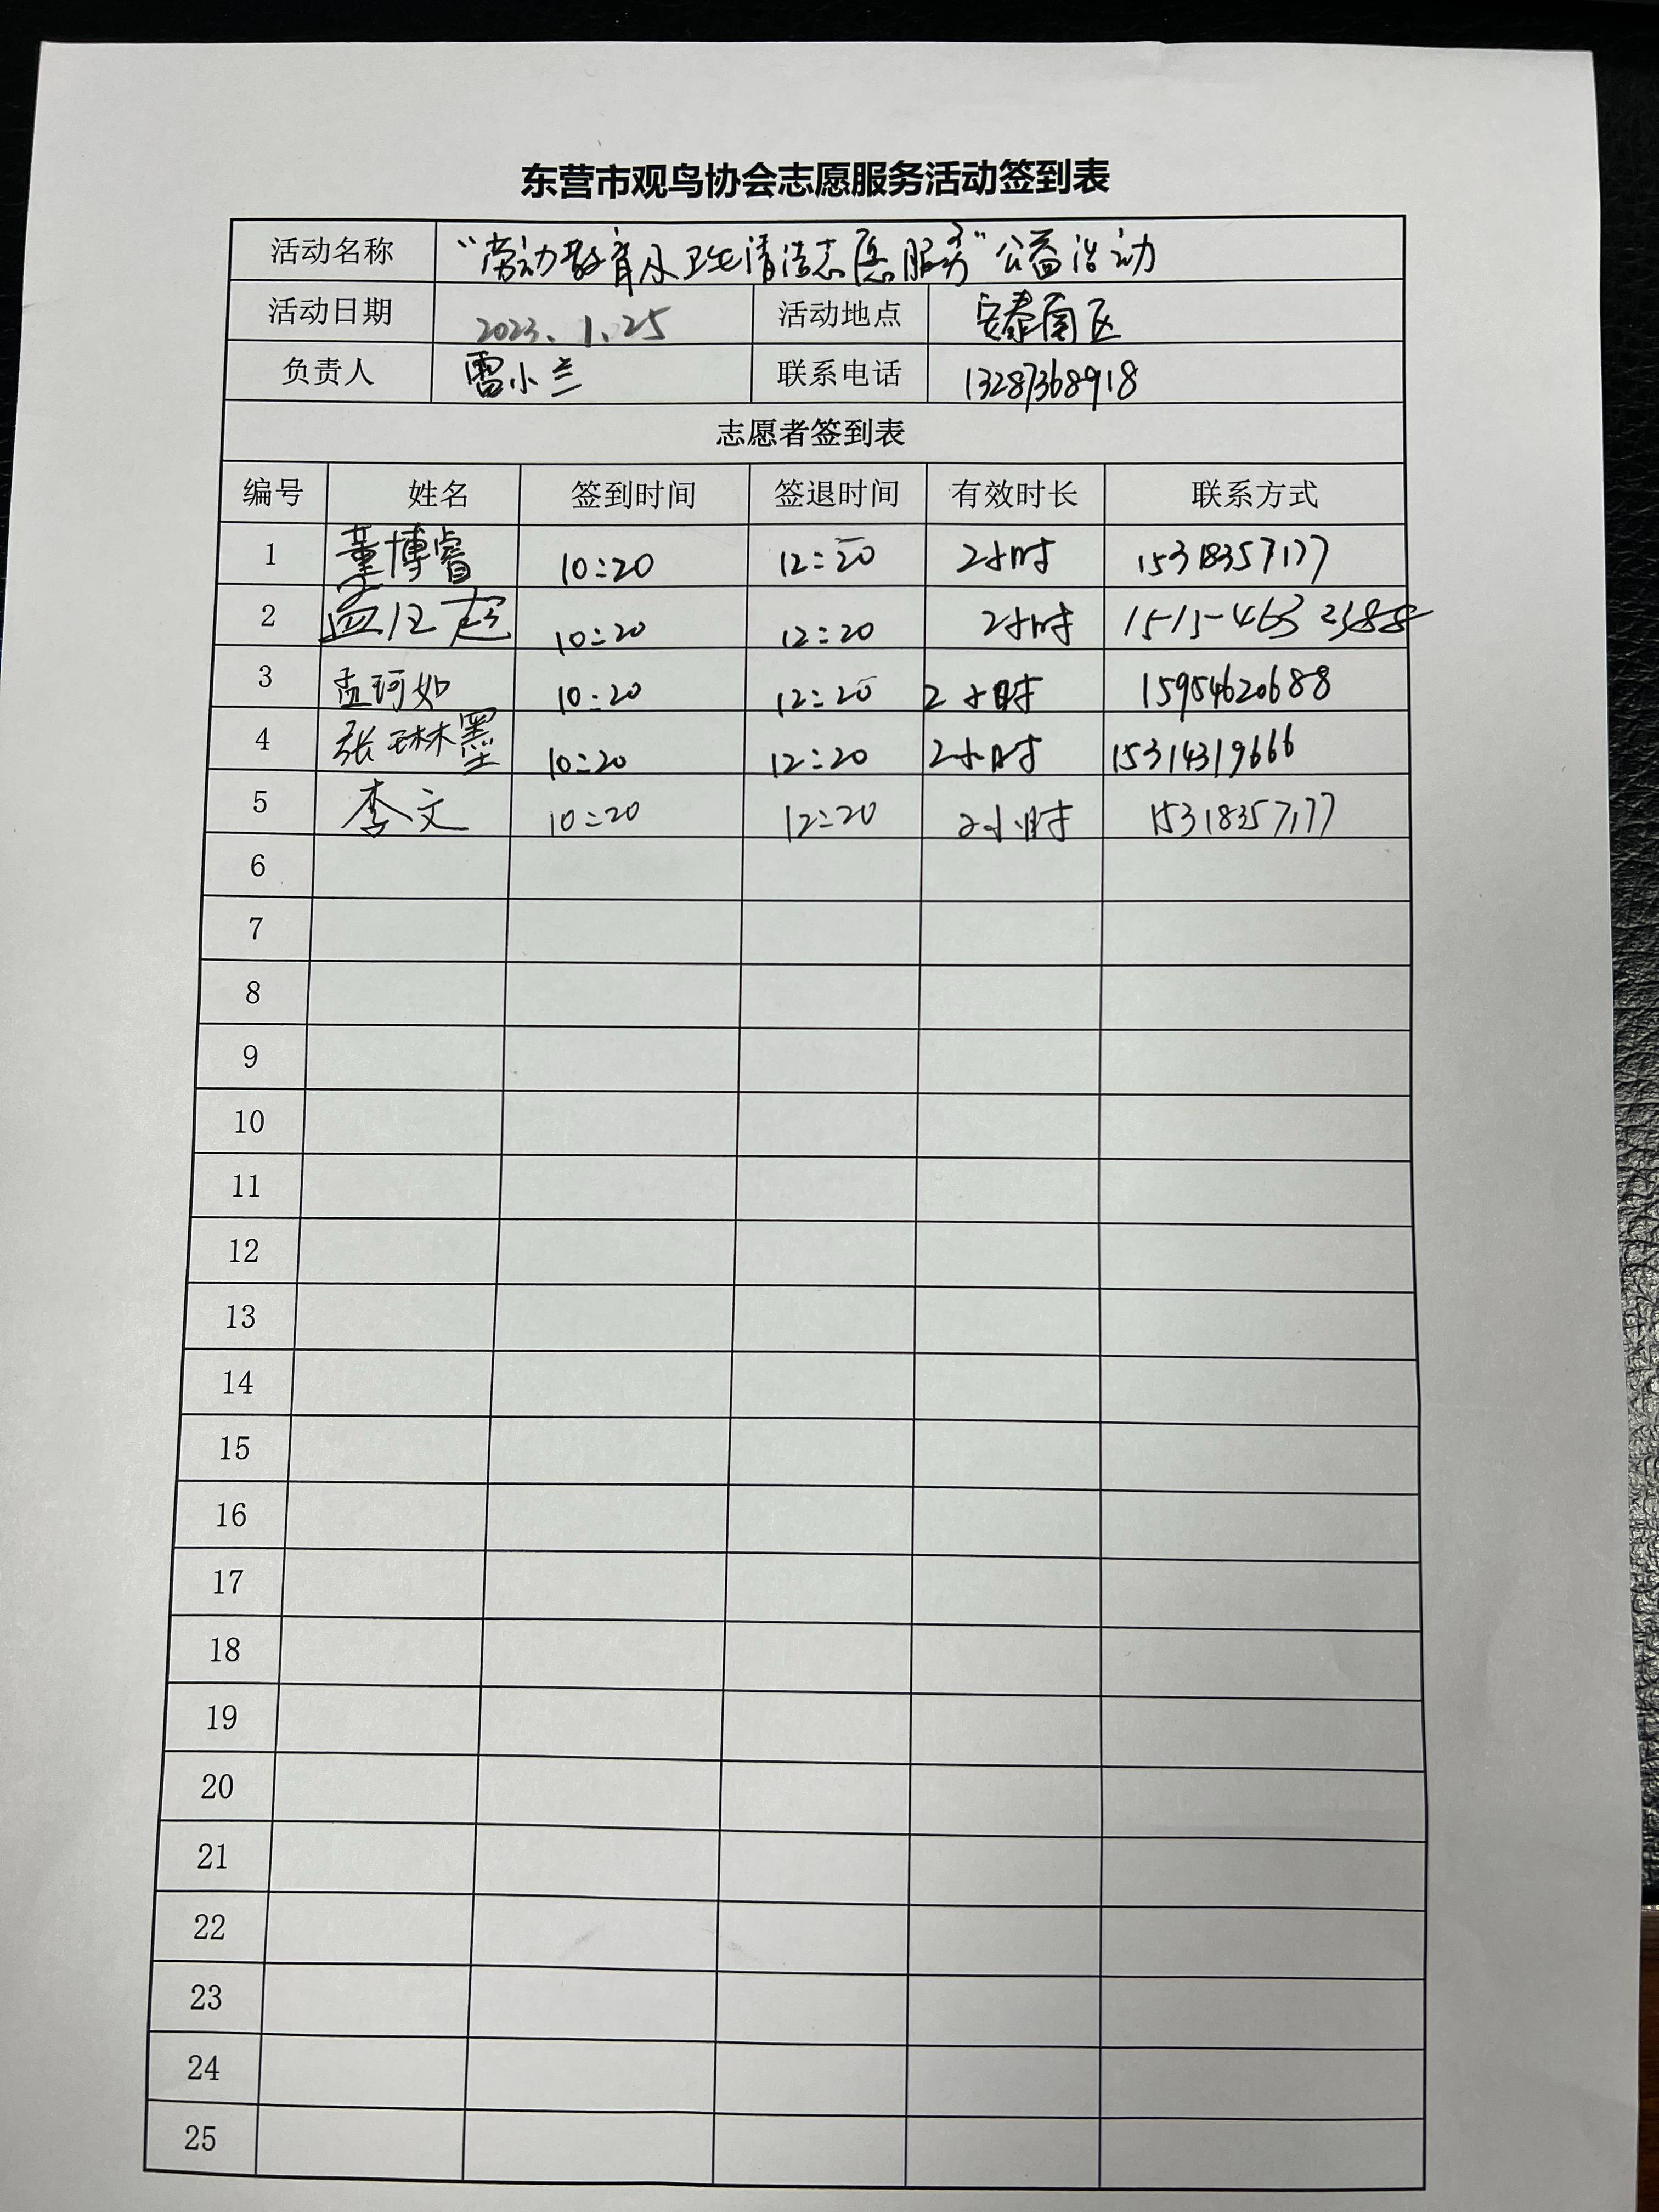 东营市观鸟协会志愿服务活动签到表
活动名称 “劳动教育及卫生清洁志愿服务”公益活动
活动日期 2023.1.25 活动地点 安泰南区
负责人 雷小兰 联系电话 13287368918
志愿者签到表
编号 姓名 签到时间 签退时间 有效时长 联系方式
1 董博睿 10:20 12:20 2小时 15318357177
2 10:20 12:20 2小时
3 孟珂如 10:20 12:20 2小时 15954620688
4 张琳墨 10:20 12:20 2小时 15314319666
5 李文 10:20 12:20 2小时 15318357177
6
7
8
9
10
11
12
13
14
15
16
17
18
19
20
21
22
23
24
25